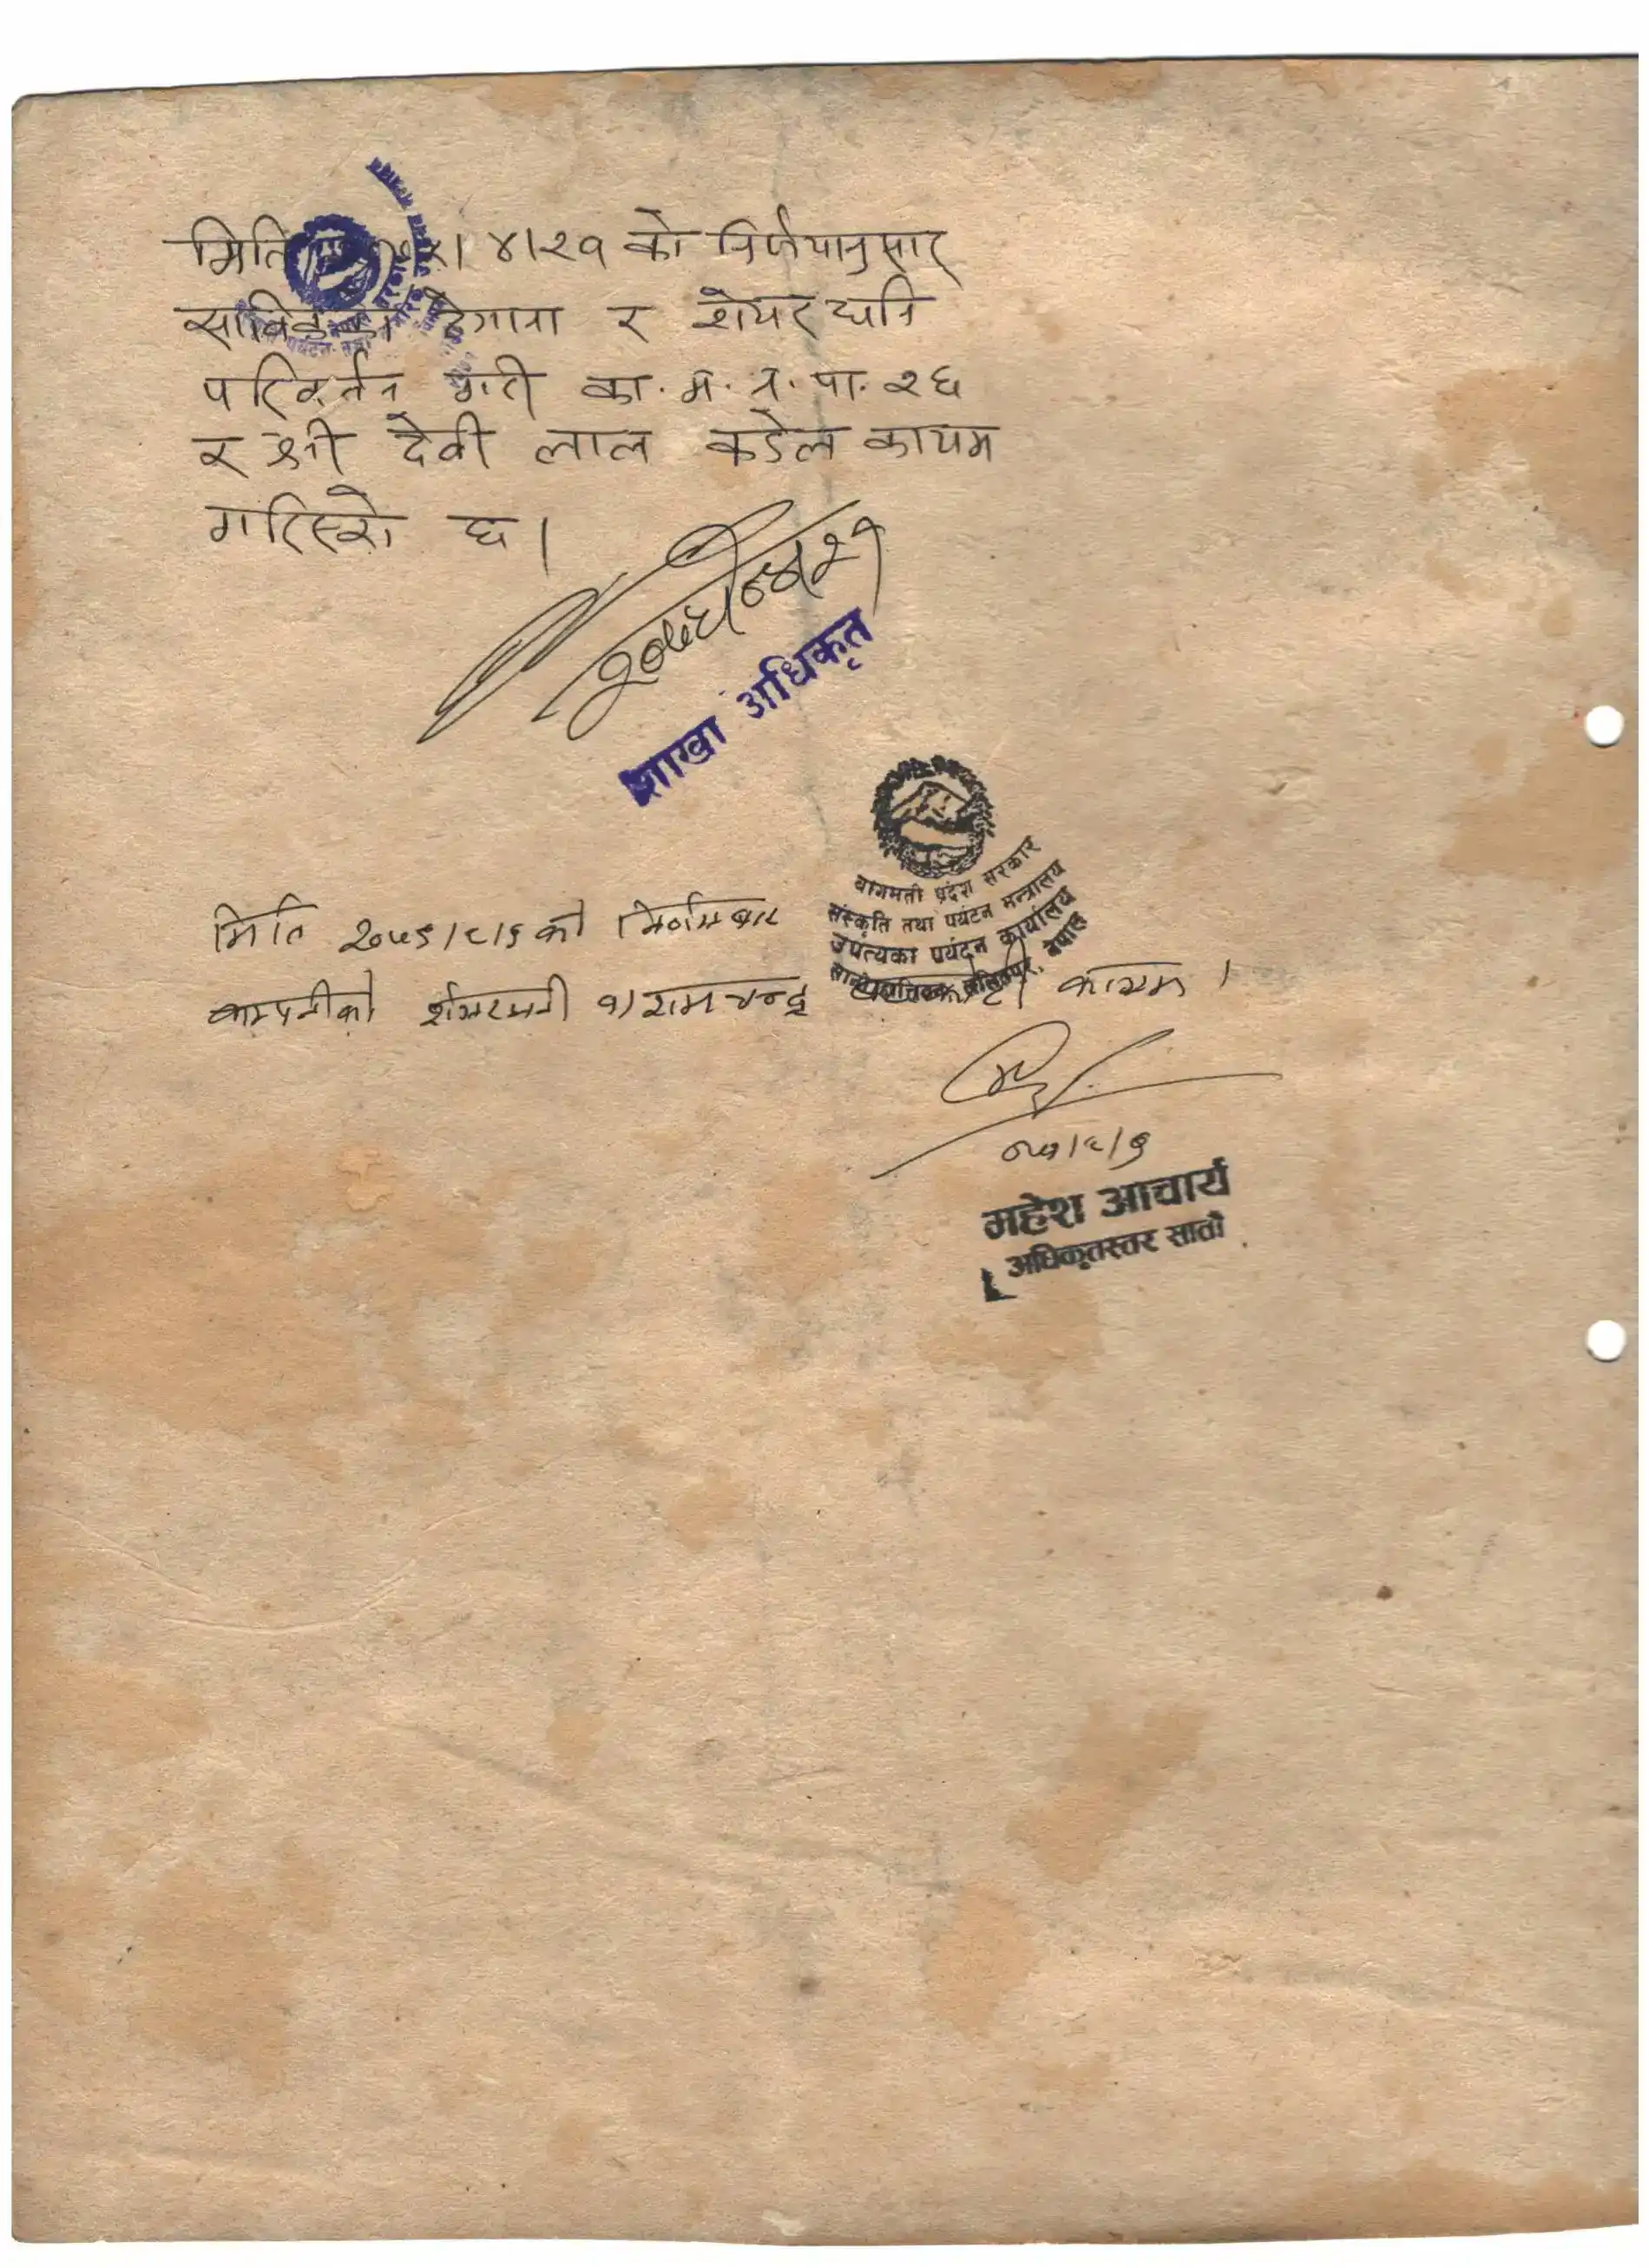 मिति । ४।२१ को निर्णयानुसार
साविकका ठेगाना र शेयर धनि
परिवर्तन गरी का. म. न. पा. २६
र श्री देवी लाल कडेल कायम
गरिएको छ ।
शाखा अधिकृत
बागमती प्रदेश सरकार
संस्कृति तथा पर्यटन मन्त्रालय
उपत्यका पर्यटन कार्यालय
ललितपुर, नेपाल
मिति को निर्णयबाट
कम्पनीको शेयरधनी १) रामचन्द्र कायम ।
महेश आचार्य
अधिकृतस्तर सातौं